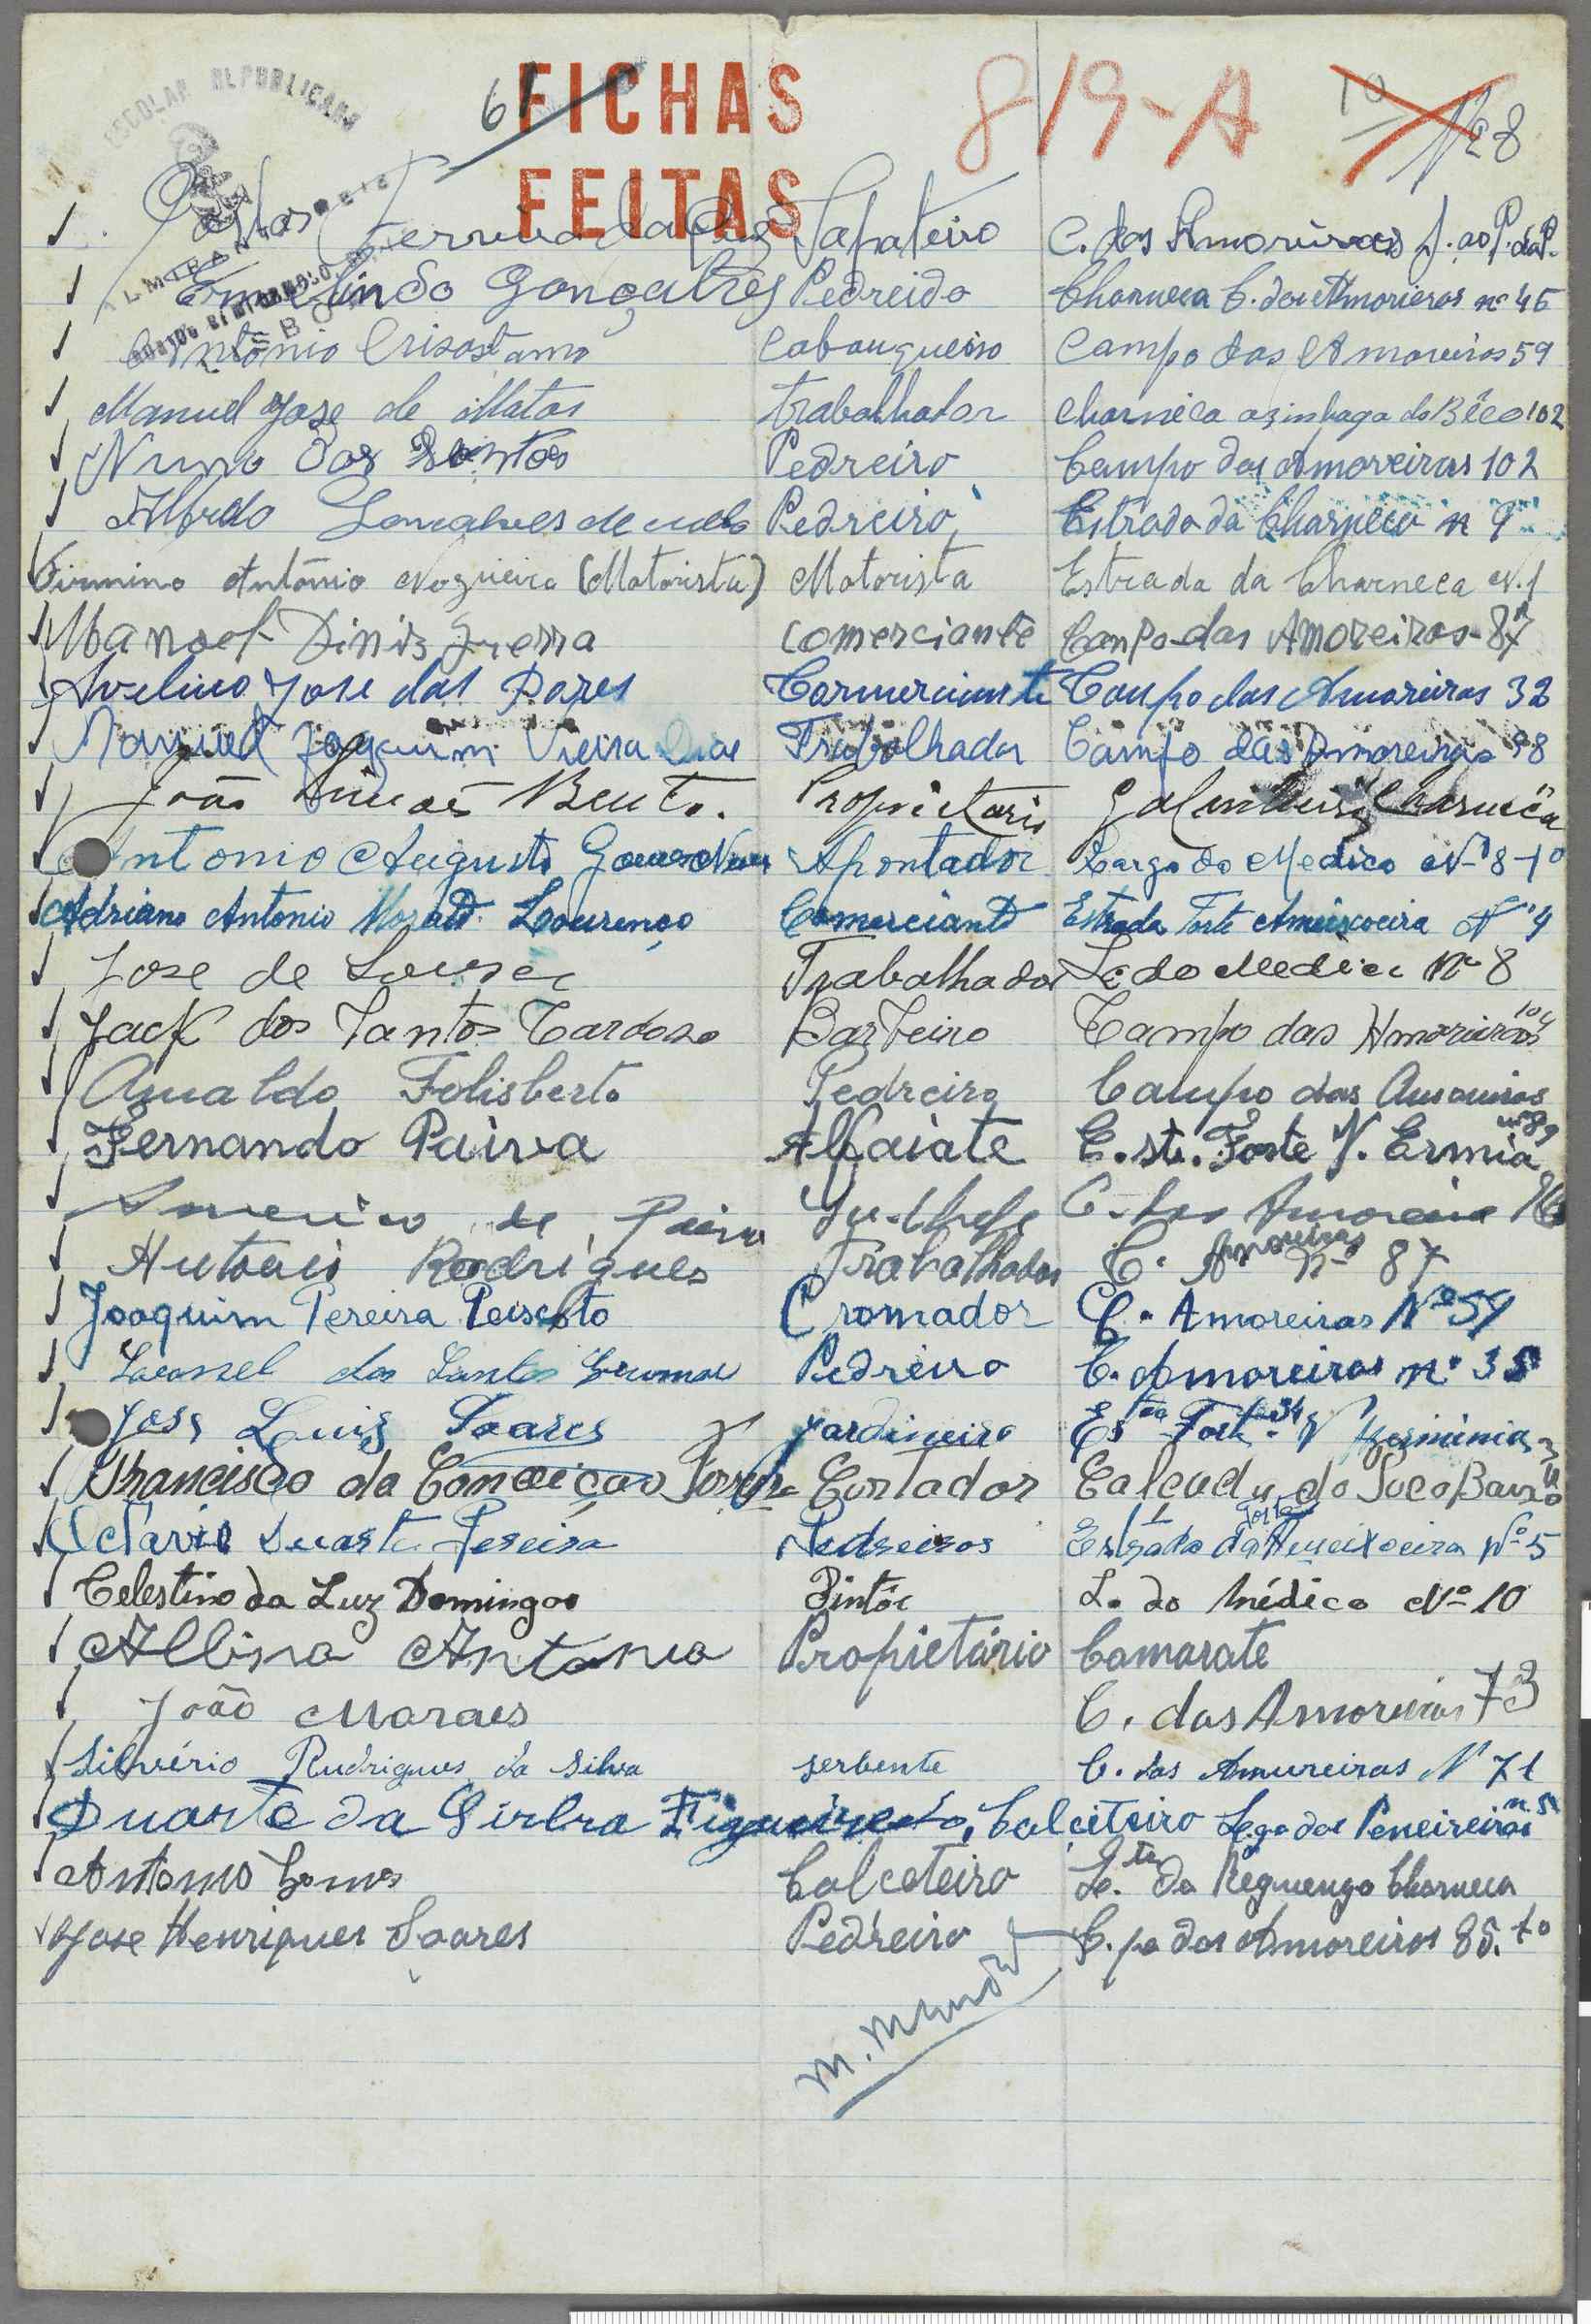 ESCOLAR REPUBLICANO
FICHAS
FEITAS
61
819-A
10
Nº 8
Ferreira da Cruz Sapateiro C. das Amoreiras
Ermelindo Gonçalves Pedreido Charneca C. das Amorieras nº 45
António Crisostamo Cabouqueiro Campo das Amoreiras 59
Manuel Jose de Matos trabalhador charneca azinhaga do Bêco 102
Nuno dos Santos Pedreiro Campo das Amoreiras 102
Alfredo Goncalves de Pedreiro Estrada da Charneca n 9
Firmino António Nogueira (Motorista) Motorista Estrada da Charneca N. 1
Manoel Diniz Guerra comerciante Campo das Amoreiras 87
Avelino Jose das Pares Cormerciante Campo das Amoreiras 32
Manuel Joaquim Vieira Trabalhador Campo das Amoreiras 98
João Simões Bento. Proprietario Galinheiras Charneca
Antonio Augusto Gomes Neves Apontador Largo do Medico Nº 8-1º
Adriano Antonio Lourenço Comerciante Estrada Forte Ameixoeira Nº 4
Jose de Sousa Trabalhador L. do Medico Nº 8
Jack dos Santos Cardoso Barbeiro Campo das Amorieras 104
Arnaldo Felisberto Pedreiro Campo das Amoreiras nº 89
Fernando Paiva Alfaiate E. st. Forte N. Ermia
Americo de Paiva C. das Amoreiras
Antonio Rodrigues Trabalhador C. Amoreiras nº 87
Joaquim Pereira Peiscoto Cromador C. Amoreiras Nº 59
dos Santos Pedreiro C. Amoreiras nº 35
Jose Luis Soares Jardineiro Esta Forte 34
Francisco da Conceição Cortador Calcada do Poço Baixo
Octavio Duarte Pereira Pedreiros Estrada da Forte Ameixoeira Nº 5
Celestino da Luz Domingos Pintôr L. do Médico Nº 10
Albino Antonio Propietário Camarate
João Moraes C. das Amoreiras 73
Silvério Rudrigues da Silva serbente C. das Amureiras N 71
Duarte da Figueiredo, Calceteiro L.go dos Peneireiros n. 5
Antonio Gomes Calceteiro Qta do Reguengo Charneca
Jose Henriques Soares Pedreiro C.po das Amoreiras 85. 1º